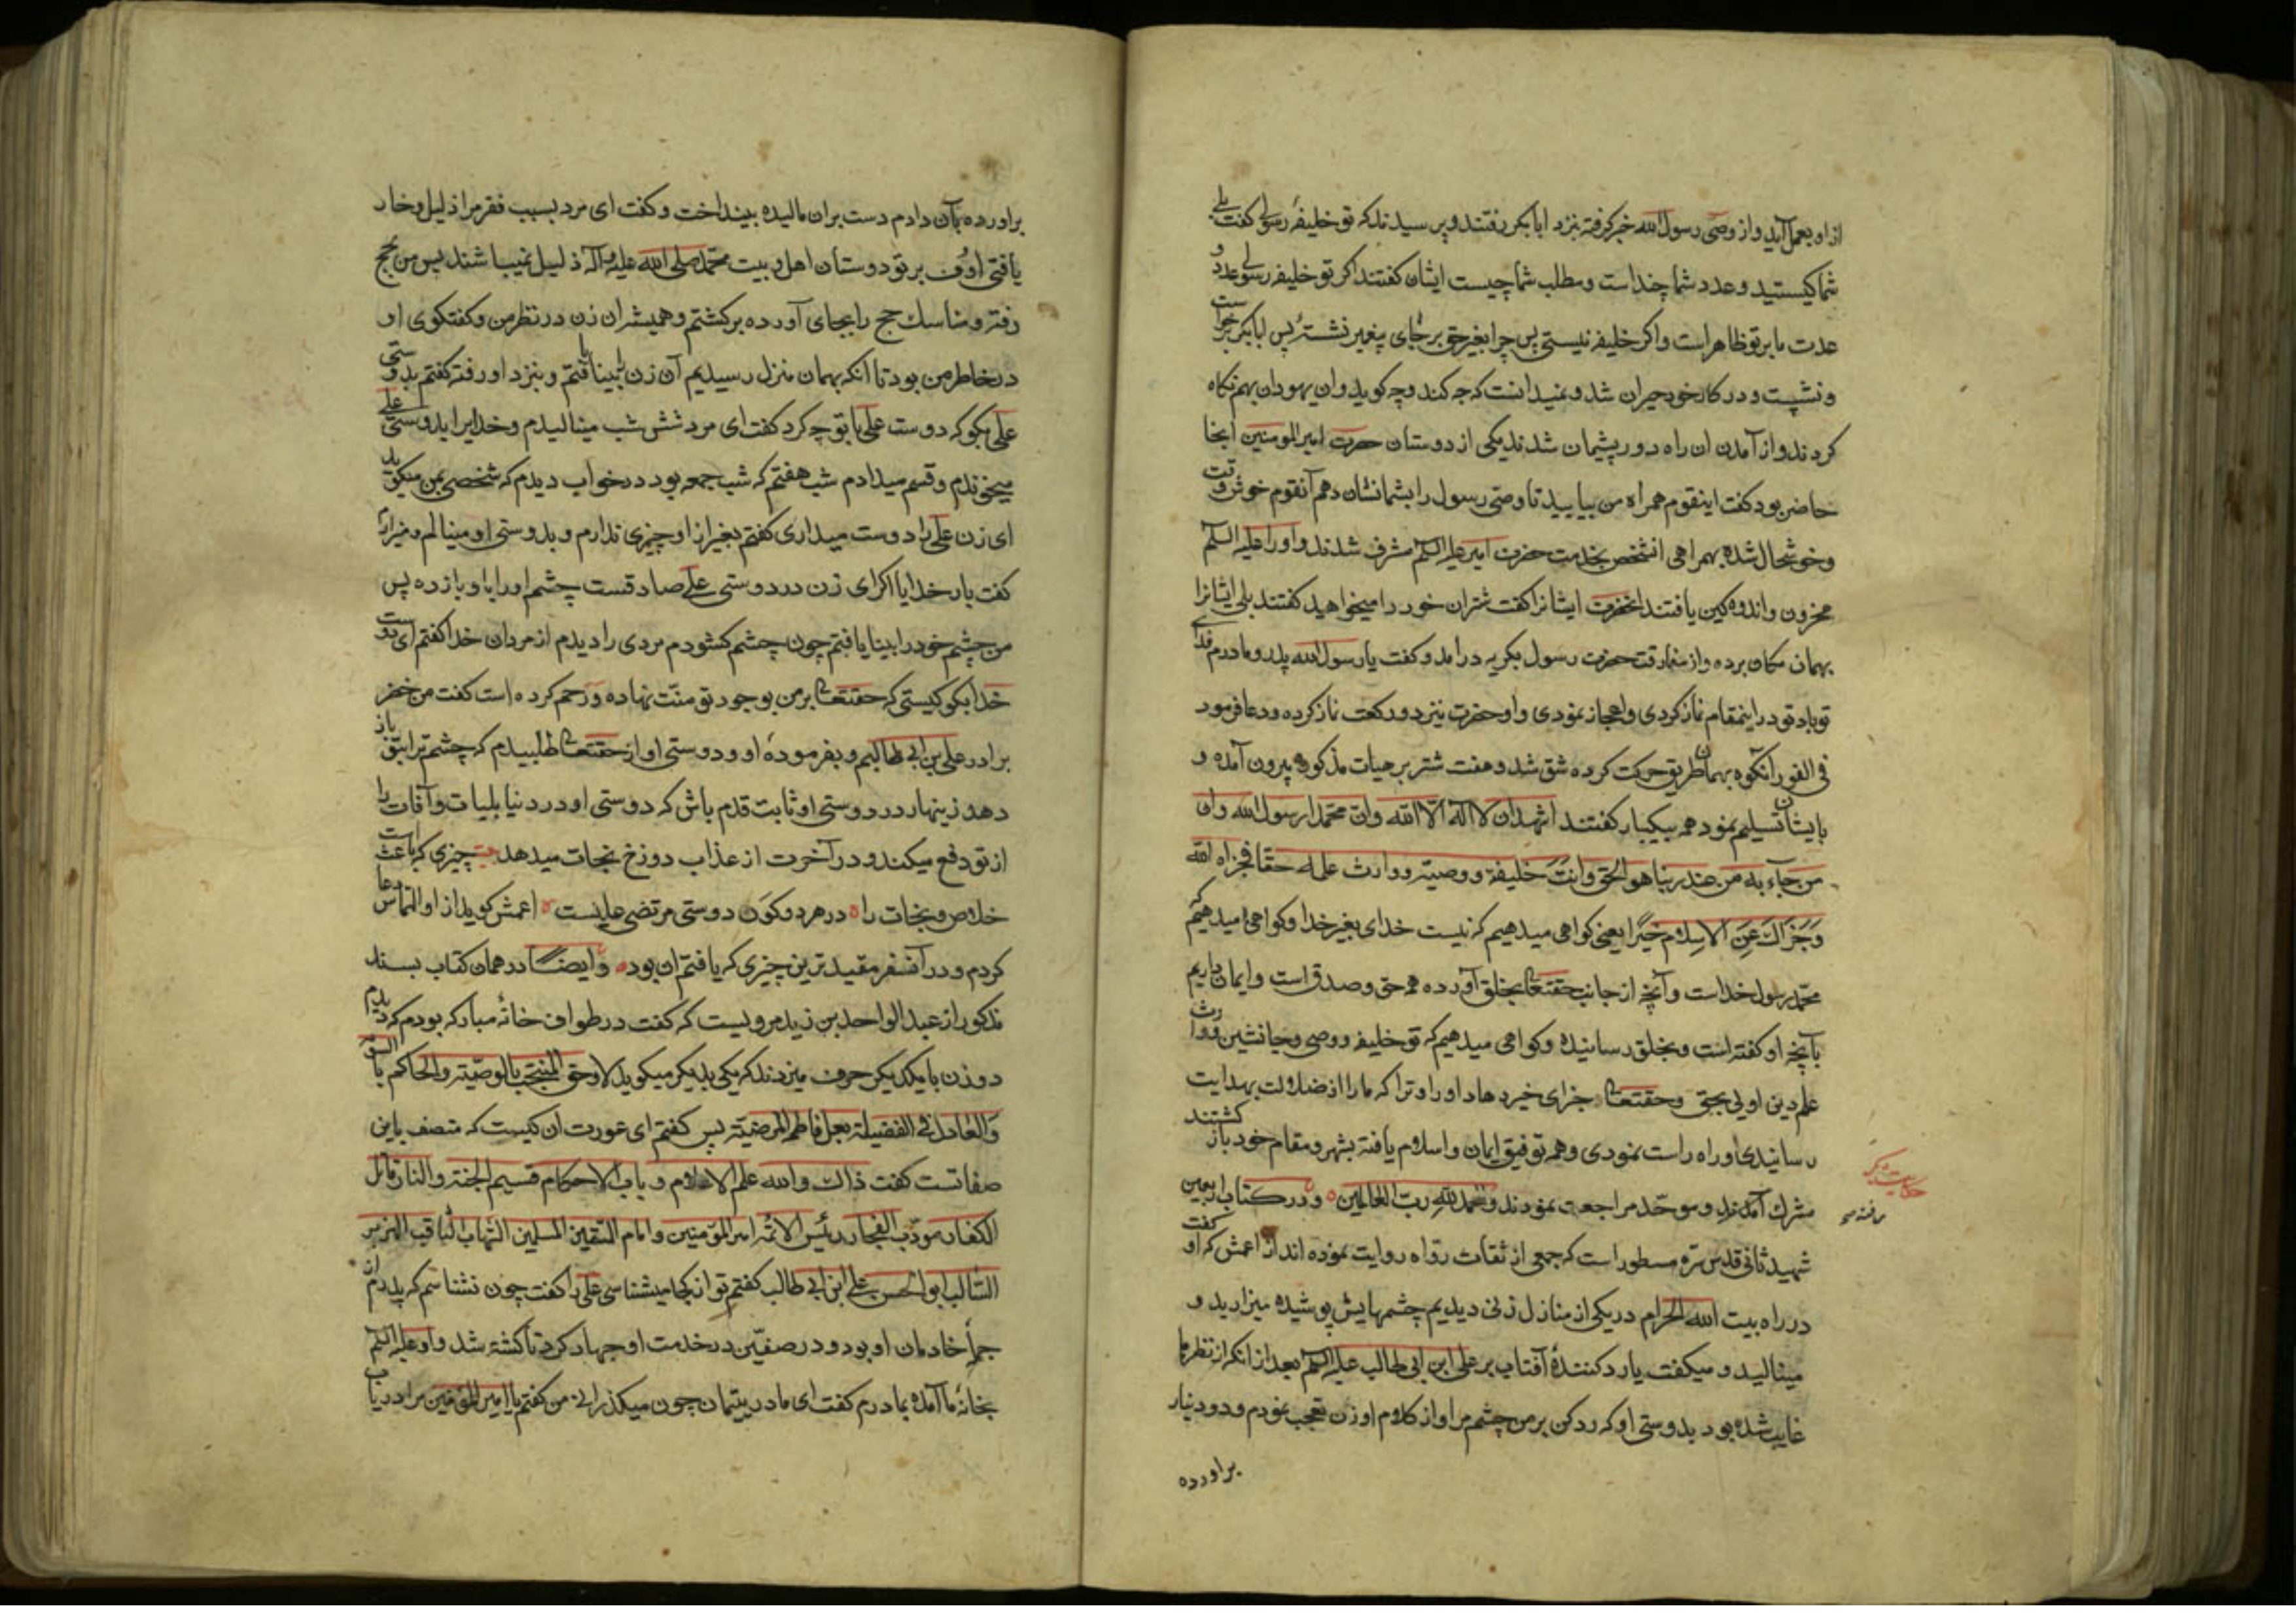 از او بعمل آید و از وصی رسول الله خبر گرفته بنزد ابابکر رفتند و پرسیدند که تو خلیفهٔ رسولی گفت بلی
شما کیستید و عدد شما چند است و مطلب شما چیست ایشان گفتند اگر تو خلیفه رسولی عدد و
عدت ما بر تو ظاهر است و اگر خلیفه نیستی پس چرا بغیر حق بر جای پیغمبر نشستهٔ پس ابابکر برخواست
و نشست و در کار خود حیران شد و نمیدانست که چه کند و چه گوید و ان یهودان بهم نگاه
کردند و از آمدن ان راه دور پشیمان شدند یکی از دوستان حضرت امیرالمومنین انجا
حاضر بود گفت اینقوم همراه من بیایید تا وصی رسول را بشما نشان دهم آنقوم خوش وقت
و خوشحال شده بهمراهی انشخص بخدمت حضرت امیر علیه السلم مشرف شدند و او را علیه السلم
محزون و اندوه کین یافتند انحضرت ایشانرا گفت شتران خود را میخواهید گفتند بلی ایشانرا
بهمان مکان برده و از مفارقت حضرت رسول بگریه در امد و گفت یا رسول الله پدر و مادرم فدای
تو باد تو در اینمقام نماز کردی و اعجاز نمودی و او حضرت نیز دو رکعت نماز کرده و دعا فرمود
فی الفور آنکوه بهمان طریق حرکت کرده شق شد و هفت شتر بر هیات مذکوره بیرون آمده و
بایشان تسلیم نمود همه بیکبار گفتند اشهد ان لا اله الا الله وان محمدا رسول الله وان
من جآء به من عند ربنا هو الحق وانت خلیفته ووصیته ووارث علمه حقا فجزاه الله
وَجَزاکَ عَنِ الاِسلام خیرًا یعنی کواهی میدهیم که نیست خدای بغیر خدا و کواهی میدهیم که
محمد رسول خداست و آنچه از جانب حقتعالی بخلق آورده همه حق و صدق است و ایمان داریم
بآنچه او گفته است و بخلق رسانیده و کواهی میدهیم که تو خلیفه و وصی و جانشین و وارث
علم دین اولی بحق و حقتعالی جزای خیر دهاد او را و ترا که ما را از ضلالت بهدایت
رسانیدی و راه راست نمودی و همه توفیق ایمان و اسلام یافته بشهر و مقام خود باز گشتند
مشرک آمدند و موحد مراجعت نمودند و الحمد لله رب العالمین و در کتاب اربعین
شهید ثانی قدس سره مسطور است که جمعی از ثقات رواه روایت نموده اند از اعمش که او گفت
در راه بیت الله الحرام در یکی از منازل زنی دیدیم چشمهایش پوشیده میزارید و
مینالید و میگفت یا رد کنندهٔ آفتاب بر علی ابن ابی طالب علیه السلم بعد از انکه از نظر ما
غایب شده بود بدوستی او که رد کن بر من چشم مرا و از کلام او زن تعجب نمودم و دو دینار
براورده
حکایت دیگر
براورده بآن دادم دست بران مالیده بینداخت و گفت ای مرد بسبب فقر مرا ذلیل و خار
یافتی اوف بر تو دوستان اهل و بیت محمد صلی الله علیه و آله ذلیل نمیباشند پس من بحج
رفته و مناسک حج را بجای آورده برگشتم و همیشه ان زن در نظر من و گفتگوی او
در خاطر من بود تا انکه بهمان منزل رسیدیم آن زن را بینا یافتم و بنزد او رفته گفتم بدوستی
علی بگو که دوست علی با تو چه کرد گفت ای مرد شش شب مینالیدم و خدا را بدوستی علی
میخوندم و قسم میدادم شب هفتم که شب جمعه بود در خواب دیدم که شخصی بمن میگوید
ای زن علی را دوست میداری گفتم بغیر از او چیزی ندارم و بدوستی او مینالم و میزارم
گفت بار خدایا اگر ای زن در دوستی علی صادقست چشم او را باو باز ده پس
من چشم خود را بینا یافتم چون چشم کشودم مردی را دیدم از مردان خدا گفتم ای دوست
خدا بگو کیستی که حقتعالی بر من بوجود تو منت نهاده و رحم کرده است گفت من خضر
برادر علی بن ابی طالبم و بفرمودهٔ او و دوستی او از حقتعالی طلبیدم که چشم ترا بتو باز
دهد زینهار در دوستی او ثابت قدم باش که دوستی او در دنیا بلیات و آفات را
از تو دفع میکند و در آخرت از عذاب دوزخ نجات میدهد چیزی که باعث است
خلاص و نجات را در هر دو کَون دوستی مرتضی علیست اعمش گوید از او التماس دعا
کردم و در آنسفر مفید ترین چیزی که یافتم ان بود و ایضا در همان کتاب بسند
مذکور از عبد الواحد بن زید مرویست که گفت در طواف خانهٔ مبارکه بودم که دیدم
دو زن با یکدیکر حرف میزدند که یکی بدیکر میکوید لا وحق المنتجب بالوصیته والحاکم بالسویة
وَالعادل فی القضیة بعل فاطمه المرضیته پس گفتم ای عورت ان کیست که متصف باین
صفاتست گفت ذاک والله علم الاعلام و باب الاحکام قسیم الجنة والنار قاتل
الکفار مؤدب الفجار رئیس الائمه امیر المؤمنین و امام المتقین المسلمین الشهاب الثاقب الهزبر
السالب ابو الحسن علی ابن ابی طالب گفتم تو از کجا میشناسی علی را گفت چون نشناسم که پدرم از
جملهٔ خادمان او بود و در صفین در خدمت او جهاد کرد تا کشته شد و او علیه السلم
بخانهٔ ما آمده بمادرم گفت ای مادر یتیمان چون میکذرانی من گفتم یا امیر المؤمنین مرا دریاب